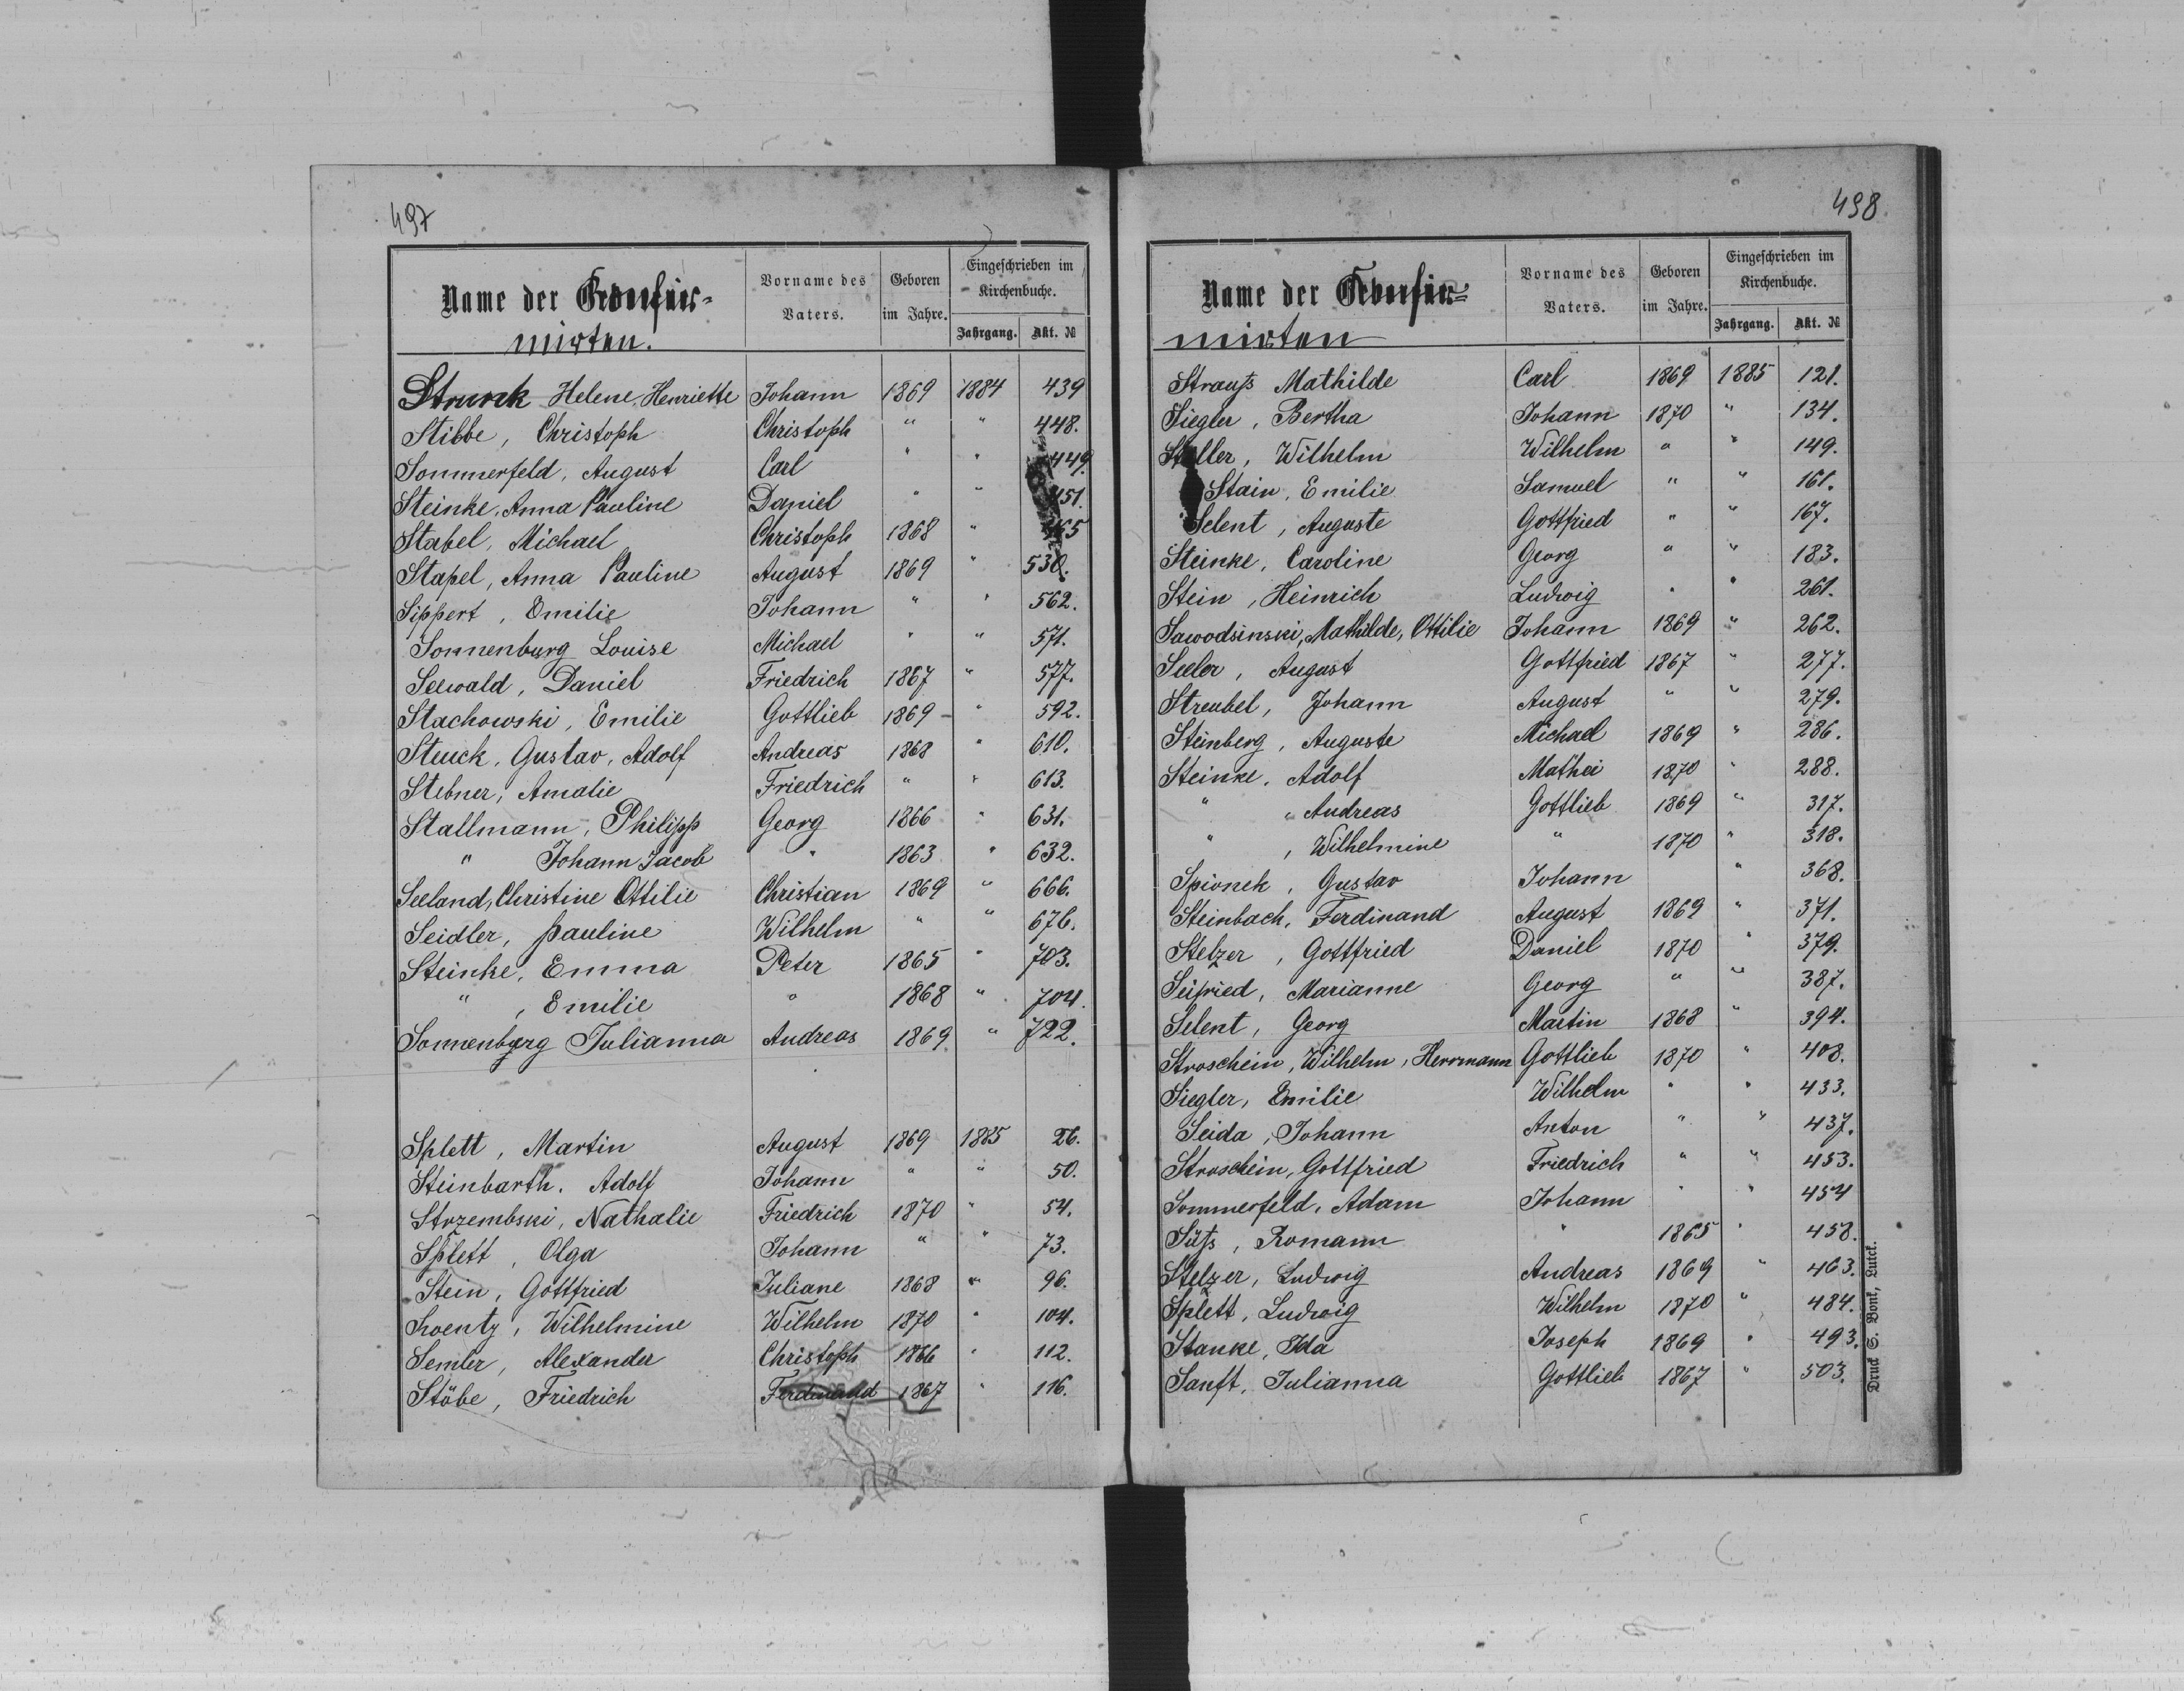 497
Name der Confir-
mirten.
Vorname des Vaters.
Geboren im Jahre.
Eingeschrieben im Kirchenbuche.
Jahrgang. Akt. №
Struck Helene Henriette Johann 1869 1884 439
Stibbe, Christoph Christoph " " 448.
Sommerfeld, August Carl " " 449.
Steinke, Anna Pauline Daniel " " 451.
Stabel, Michael Christoph 1868 " 465
Stapel, Anna Pauline August 1869 " 530.
Sippert, Emilie Johann " " 562.
Sonnenburg Louise Michael " " 571.
Seewald, Daniel Friedrich 1867 " 577.
Stachowski, Emilie Gottlieb 1869 " 592.
Stuck, Gustav, Adolf Andreas 1868 " 610.
Stebner, Amalie Friedrich " " 613.
Stallmann, Philipp Georg 1866 " 631.
" Johann Jacob " 1863 " 632.
Seeland, Christine Ottilie Christian 1869 " 666.
Seidler, Pauline Wilhelm " " 676.
Steinke, Emma Peter 1865 " 703.
" , Emilie " 1868 " 704.
Sonnenburg Julianna Andreas 1869 " 722.
Splett, Martin August 1869 1885 26.
Steinbarth. Adolf Johann " " 50.
Strzembski, Nathalie Friedrich 1870 " 54.
Splett, Olga Johann " " 73.
Stein, Gottfried Juliane 1868 " 96.
Swentz, Wilhelmine Wilhelm 1870 " 104.
Semler, Alexander Christoph 1866 " 112.
Stöbe, Friedrich Ferdinand 1867 " 116.
498.
Name der Confir-
mirten
Vorname des Vaters.
Geboren im Jahre.
Eingeschrieben im Kirchenbuche.
Jahrgang. Akt. №
Strauß Mathilde Carl 1869 1885 121.
Siegler, Bertha Johann 1870 " 134.
Steller, Wilhelm Wilhelm " " 149.
Stain, Emilie Samuel " " 161.
Selent, Auguste Gottfried " " 167.
Steinke, Caroline Georg " " 183.
Stein, Heinrich Ludwig " " 261.
Sawodsinski, Mathilde, Ottilie Johann 1869 " 262.
Seeler, August Gottfried 1867 " 277.
Streubel, Johann August " " 279.
Steinberg, Auguste Michael 1869 " 286.
Steinke, Adolf Mathei 1870 " 288.
" " Andreas Gottlieb 1869 " 317.
" , Wilhelmine " 1870 " 318.
Spionek, Gustav Johann " 368.
Steinbach, Ferdinand August 1869 " 371.
Stelzer, Gottfried Daniel 1870 " 379.
Seifried, Marianne Georg " " 387.
Selent, Georg Martin 1868 " 394.
Stroschein, Wilhelm, Herrmann Gottlieb 1870 " 408.
Siegler, Emilie Wilhelm " " 433.
Seida, Johann Anton " " 437.
Stroschein, Gottfried Friedrich " " 453.
Sommerfeld, Adam Johann " " 454
Süß, Romann " 1865 " 458.
Stelzer, Ludwig Andreas 1869 " 463.
Splett, Ludwig Wilhelm 1870 " 484.
Stanke, Ida Joseph 1869 " 493.
Sanft, Julianna Gottlieb 1867 " 503.
Druck S. Bonk, Lutck.